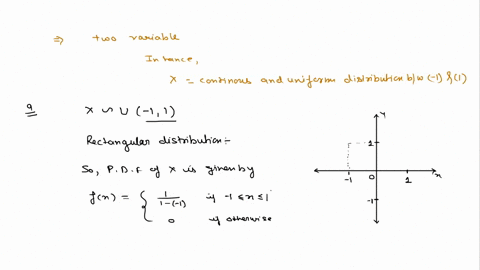 ⇒ two variable
Intance,
X = continous and uniform distribution b/w (-1) & (1)
a
X ∽ U (-1, 1)
Rectangular distribution:-
So, P.D.F of X is given by
f(x) = { 1/(1-(-1)) if -1 ≤ x ≤ 1
0 if otherwise
y
1
-1 0 1 x
-1